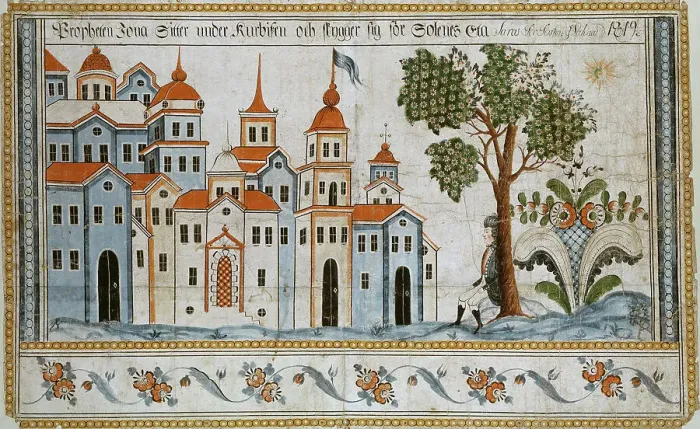 Propheten Jona Sitter under Kurbisen och skygger sig för Solenes Eta